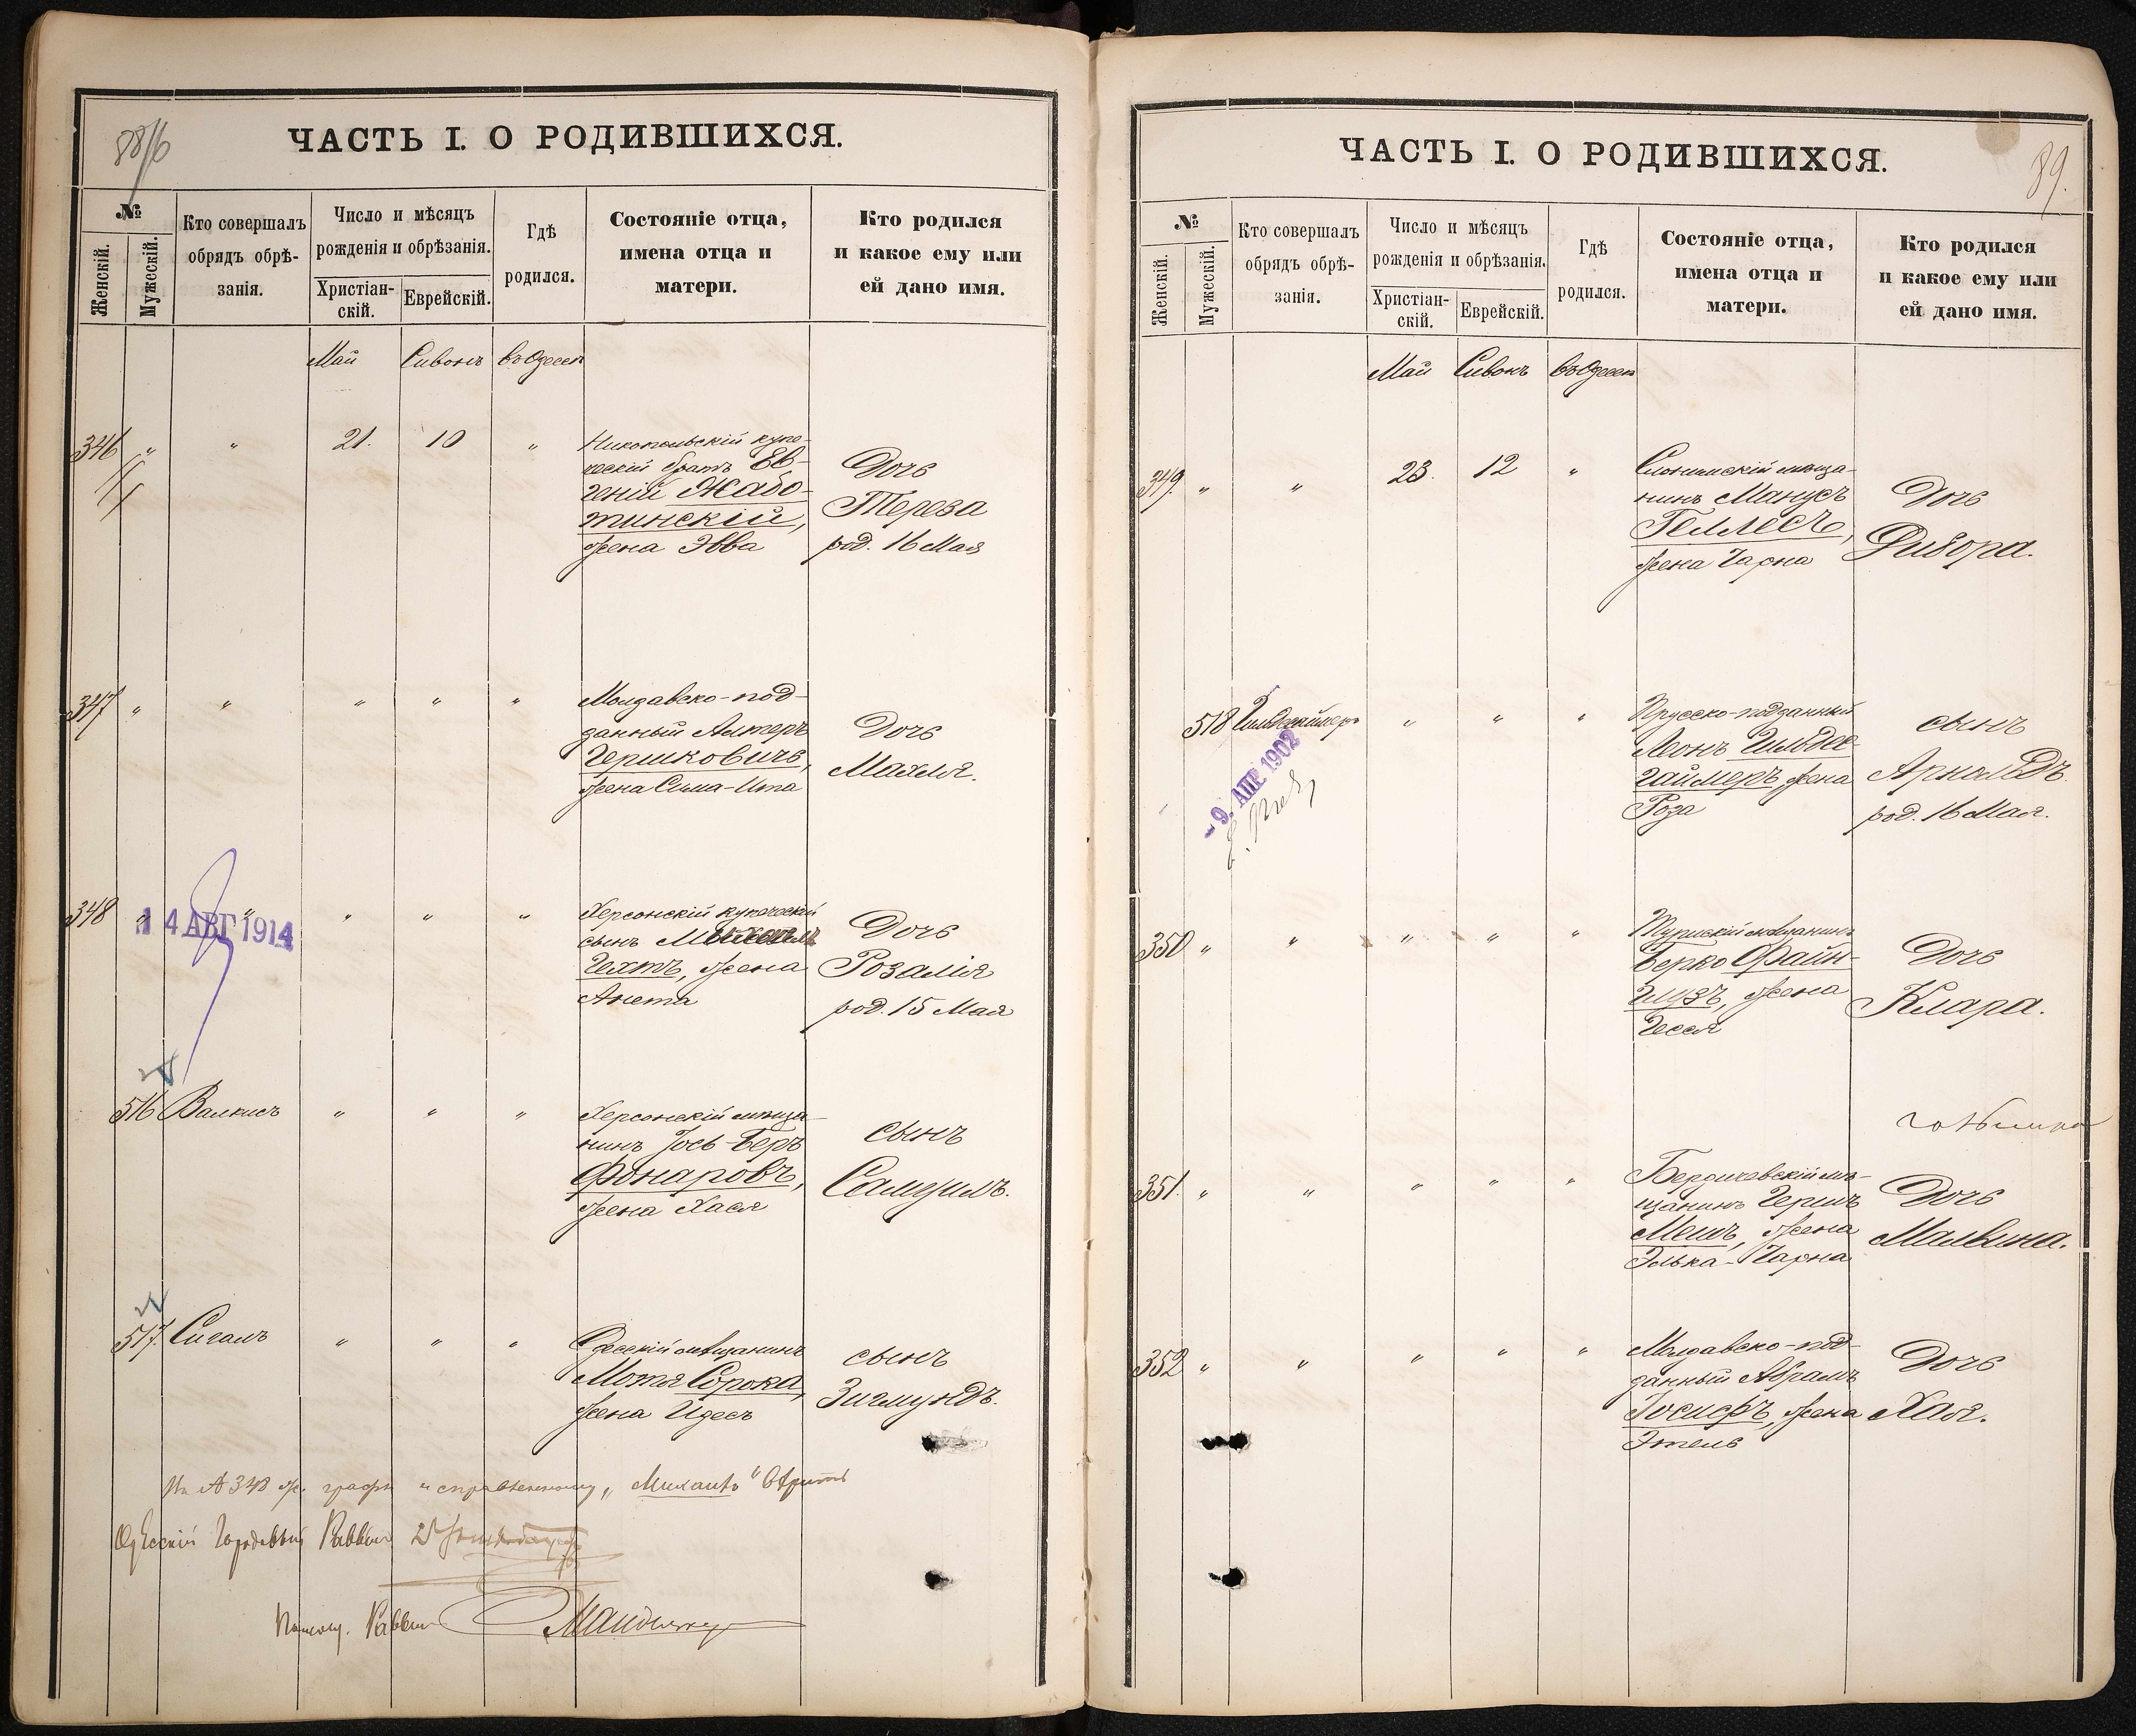 88/б
ЧАСТЬ I. О РОДИВШИХСЯ.
№
Женскій.
Мужескій.
Кто совершалъ
обрядъ обрѣ-
занія.
Число и мѣсяцъ
рожденія и обрѣзанія.
Христіан-
скій.
Еврейскій.
Гдѣ
родился.
Состояніе отца,
имена отца и
матери.
Кто родился
и какое ему или
ей дано имя.
Май Сивонъ въ Одессѣ
346 " " 21. 10 "
Никопольскій купе-
ческій братъ Ев-
геній Жабо-
тинскій,
жена Эвва
Дочь
Тереза
род. 16 Мая
347 " " " " "
Молдавско-под-
данный Алтеръ
Гершковичъ,
жена Сима-Ита
Дочь
Махля.
348 " " " " "
14 АВГ 1914
Херсонскій купеческій
сынъ
Гехтъ, жена
Анета
Дочь
Розалія
род. 15 Мая
516 Валкисъ " " "
Херсонскій мѣща-
нинъ Іось-Беръ
Фонаровъ,
жена Хася
сынъ
Самуилъ.
517. Сигалъ " " "
Одесскій мѣщанинъ
Мотя Сорока,
жена Идесъ
сынъ
Зигмундъ.
На № 348 графѣ исправленному „Михаилъ" вѣрить
Одесскій Городовый Раввинъ
Помощ. Раввин
89.
ЧАСТЬ I. О РОДИВШИХСЯ.
№
Женскій.
Мужескій.
Кто совершалъ
обрядъ обрѣ-
занія.
Число и мѣсяцъ
рожденія и обрѣзанія.
Христіан-
скій.
Еврейскій.
Гдѣ
родился.
Состояніе отца,
имена отца и
матери.
Кто родился
и какое ему или
ей дано имя.
Май Сивонъ въ Одессѣ
349. " " 23. 12 "
Слонимскій мѣща-
нинъ Манусъ
Геллесъ,
жена Чарна
Дочь
Дибора.
518 Гильдесгаймеръ " " "
- 9. АПР 1902
Прусско-подданный
Леонъ Гильдес-
гаймеръ, жена
Роза
сынъ
Арнольдъ.
род. 16 Мая.
350 " " " " "
мѣщанинъ
Берко Файн-
жена
Гесся
Дочь
Клара.
351. " " " " "
Бердичевскій мѣ-
щанинъ Гершъ
Мешъ, жена
Элька-Чарна
Дочь
Мальвина.
352 " " " " "
Молдавско-под-
данный Абрамъ
Іосифъ, жена
Этель
Дочь
Хая.